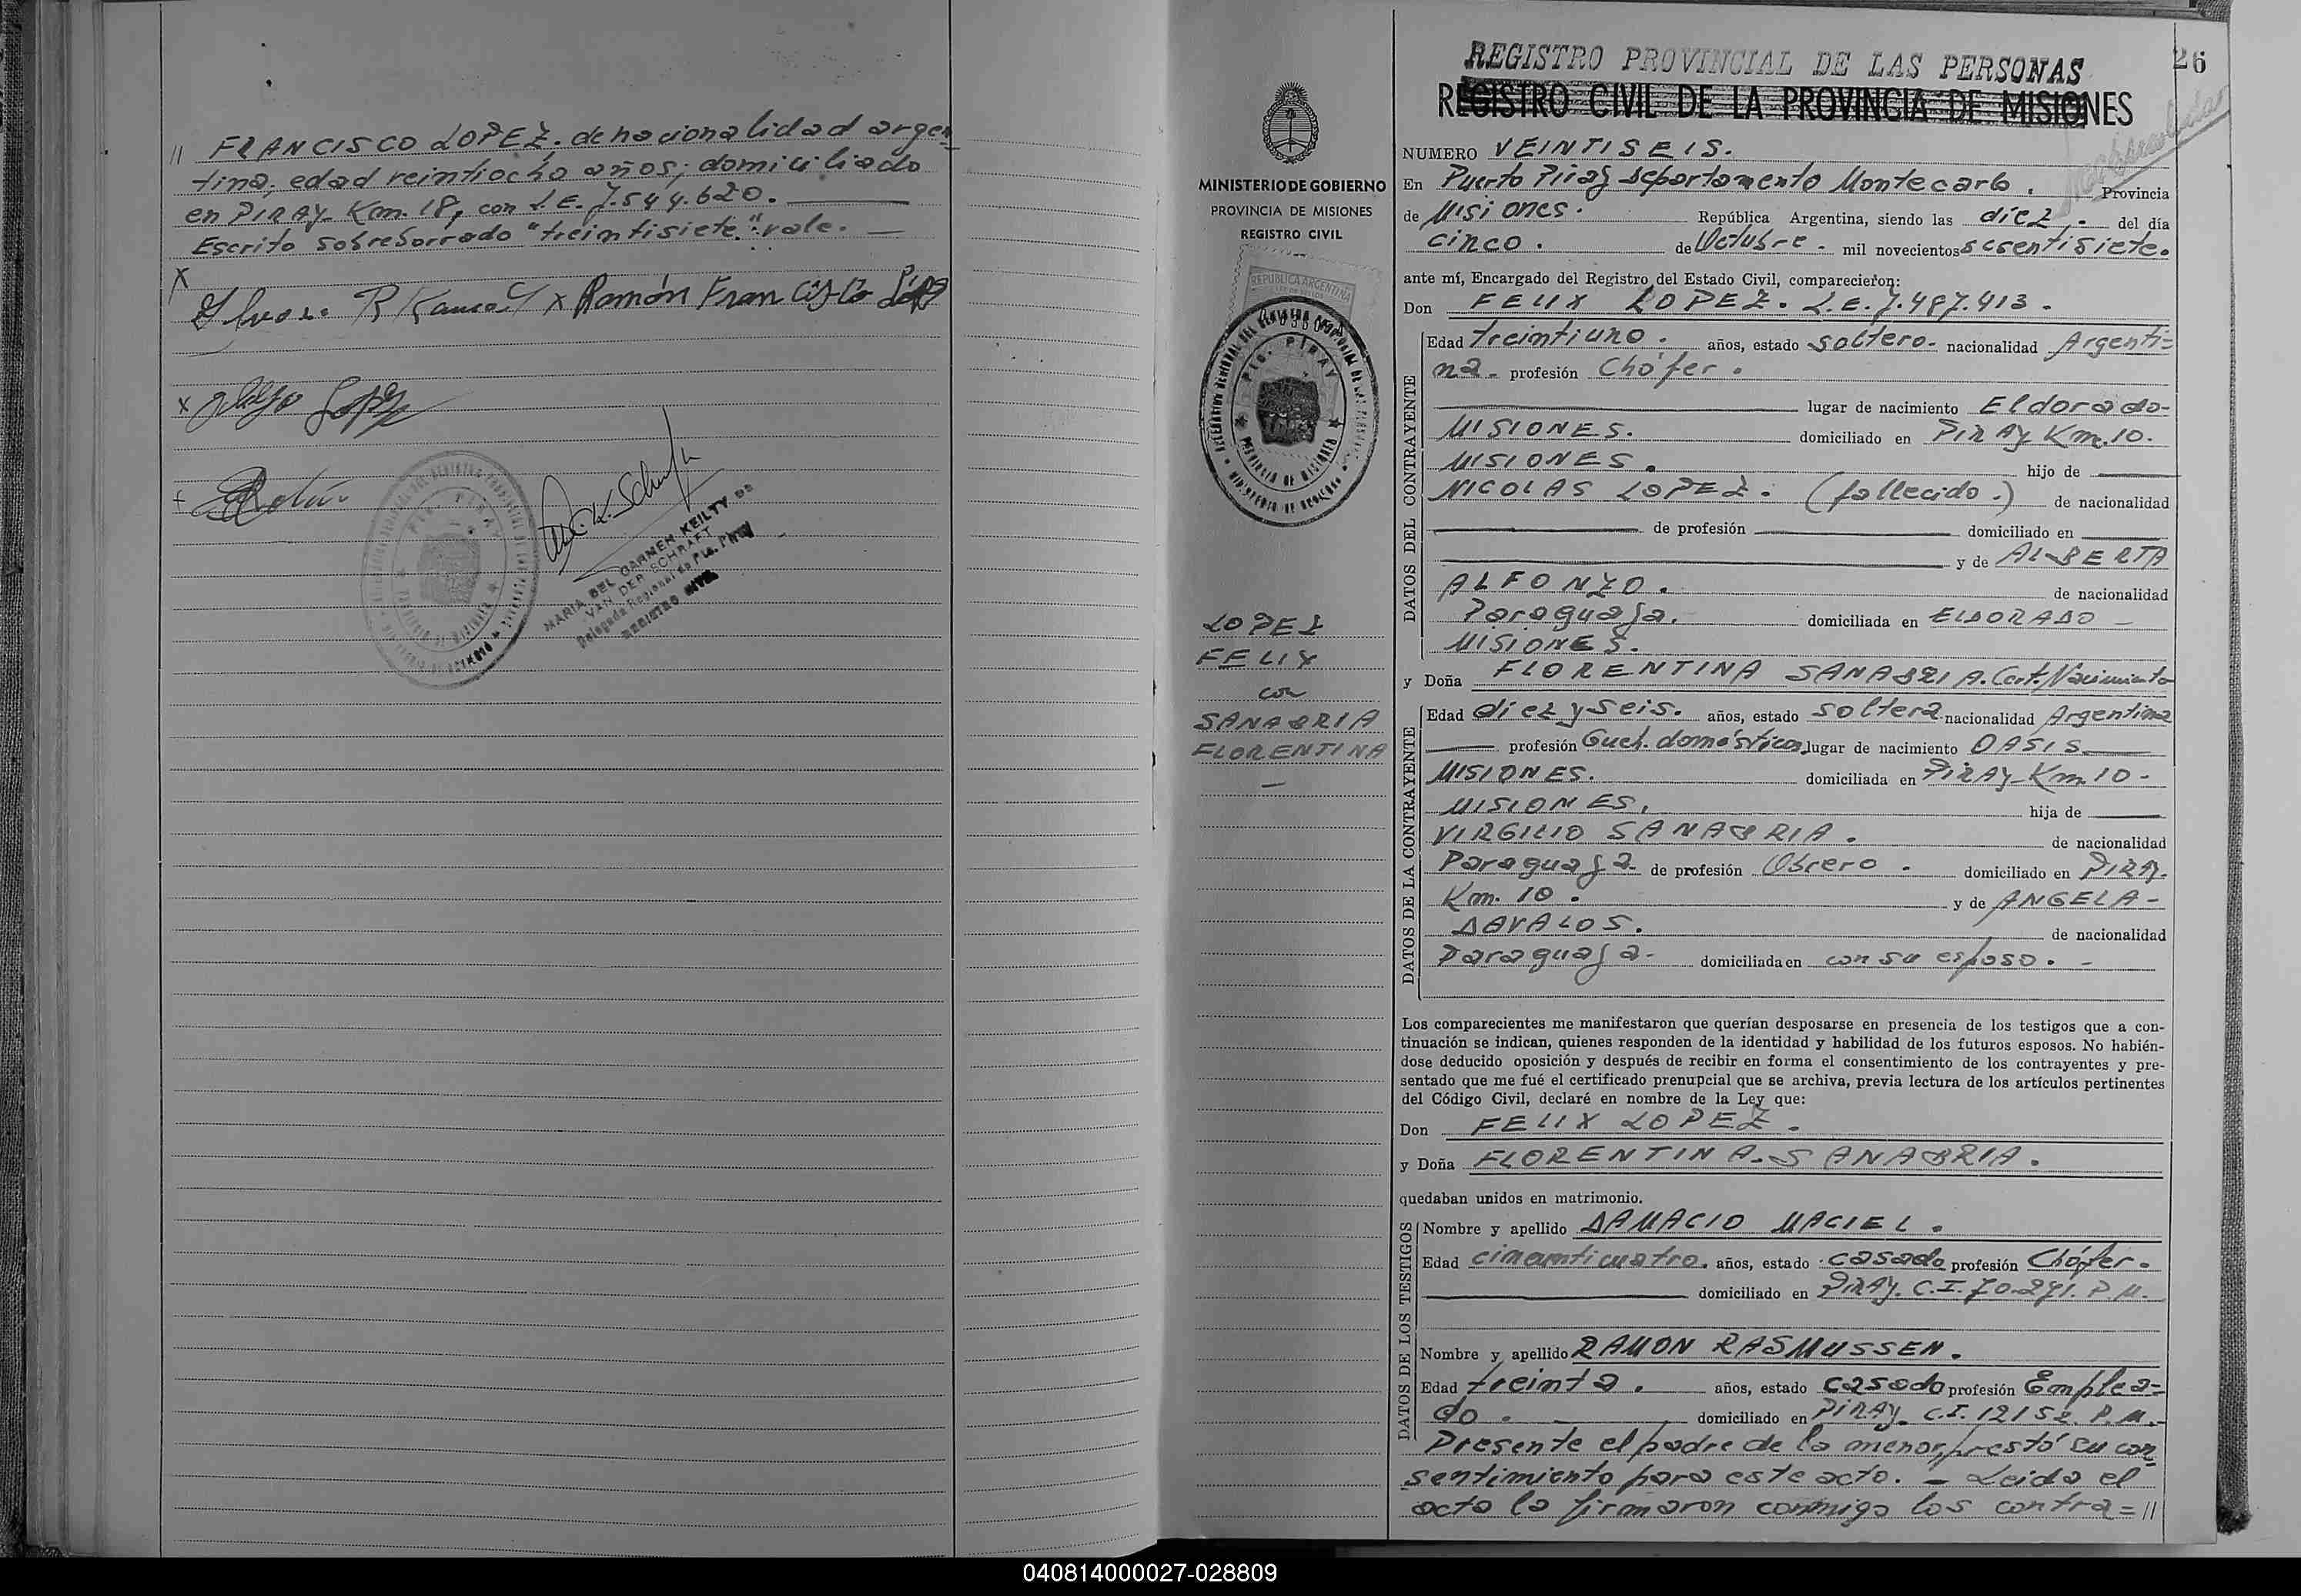 // FRANCISCO LOPEZ. de nacionalidad argen-
tina, edad veintiocho años, domiciliado
en PIRAY Km. 18, con L.E. 7.544.620.
Escrito sobreborrado "treintisiete": vale.
x
x Ramón Francisco López
x López
MARIA DEL CARMEN KEILTY DE
VAN DER SCHRAFT
Delegada Regional de Pto. Piray
REGISTRO CIVIL
26
REGISTRO PROVINCIAL DE LAS PERSONAS
REGISTRO CIVIL DE LA PROVINCIA DE MISIONES
MINISTERIO DE GOBIERNO
PROVINCIA DE MISIONES
REGISTRO CIVIL
REPUBLICA ARGENTINA
PTO. PIRAY
PROVINCIA DE MISIONES
LOPEZ
FELIX
con
SANABRIA
FLORENTINA
NUMERO VEINTISEIS.
En Puerto Piray departamento Montecarlo. Provincia
de Misiones. República Argentina, siendo las diez. del día
cinco. de Octubre. mil novecientos sesentisiete.
ante mí, Encargado del Registro del Estado Civil, comparecieron:
Don FELIX LOPEZ. L.E. 7.487.413.
DATOS DEL CONTRAYENTE
Edad treintiuno. años, estado soltero. nacionalidad Argenti=
na. profesión Chófer.
lugar de nacimiento Eldorado-
MISIONES. domiciliado en PIRAY Km. 10.
MISIONES. hijo de
NICOLAS LOPEZ. (fallecido.) de nacionalidad
de profesión domiciliado en
y de ALBERTA
ALFONZO. de nacionalidad
Paraguaya. domiciliada en ELDORADO -
MISIONES.
y Doña FLORENTINA SANABRIA. Cert. Nacimiento
DATOS DE LA CONTRAYENTE
Edad diez y seis. años, estado soltera. nacionalidad Argentina
profesión Queh. domésticos, lugar de nacimiento OASIS
MISIONES. domiciliada en PIRAY-Km 10-
MISIONES. hija de
VIRGILIO SANABRIA. de nacionalidad
Paraguaya. de profesión Obrero. domiciliado en PIRAY.
Km. 10. y de ANGELA-
DAVALOS. de nacionalidad
Paraguaya. domiciliada en con su esposo. -
Los comparecientes me manifestaron que querían desposarse en presencia de los testigos que a con-
tinuación se indican, quienes responden de la identidad y habilidad de los futuros esposos. No habién-
dose deducido oposición y después de recibir en forma el consentimiento de los contrayentes y pre-
sentado que me fué el certificado prenupcial que se archiva, previa lectura de los artículos pertinentes
del Código Civil, declaré en nombre de la Ley que:
Don FELIX LOPEZ.
y Doña FLORENTINA SANABRIA.
quedaban unidos en matrimonio.
DATOS DE LOS TESTIGOS
Nombre y apellido DAMACIO MACIEL.
Edad cincuenticuatro. años, estado casado profesión Chófer.
domiciliado en PIRAY. C.I. 70.271. P.M.
Nombre y apellido RAMON RASMUSSEN.
Edad treinta. años, estado casado profesión Emplea=
do. domiciliado en PIRAY. C.I. 12152. P.M.
Presente el padre de la menor, prestó su con
sentimiento para este acto. - Leida el
acta la firmaron conmigo los contra= //
040814000027-028809